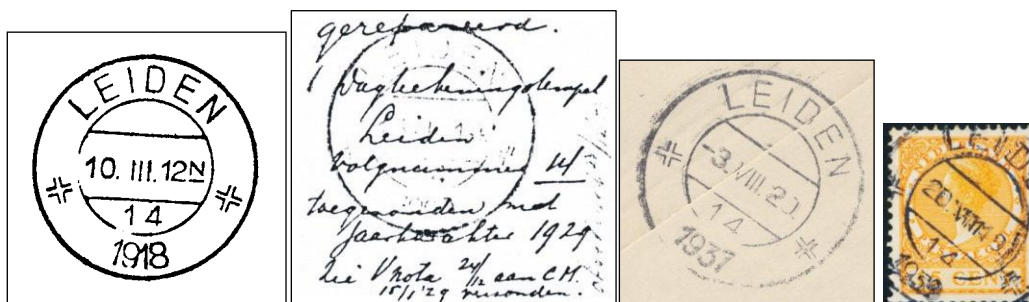 LEIDEN
10. III. 12N
14
1918
gerepareerd.
1 Dagteekeningstempel
Leiden
volgnummer 14
toegezonden met
jaarkarakter 1929
Zie V nota 24/12 aan C.M.
15/1 '29 verzonden.
LEIDEN
-3.VIII.2
14
1937
LEID
20.VI
14
CENT